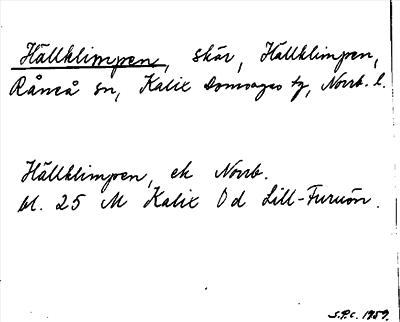 Hällklimpen, skär, Hällklimpen,
Råneå sn, Kalix domsagas tg, Norrb. l.
Hällklimpen, ek Norrb.
bl. 25 M Kalix Od Lill-Furuön.
S.P.C. 1959.